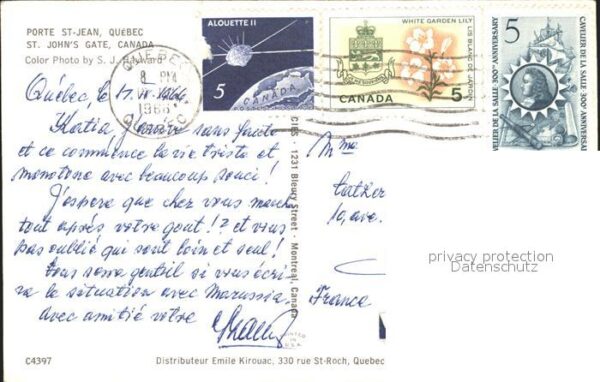 PORTE ST-JEAN, QUÉBEC
ST. JOHN'S GATE, CANADA
Color Photo by S. J. Hayward
Québec, le 1966
Katia,
et ce commence la vie triste et
monotone avec beaucoup souci!
J'espere que chez vous marche
tout après votre gout!? et vous
pas oublié qui sont loin et seul!
gentil si vous écri
va le situation avec Marussia.
avec amitié votre
C4397
Distributeur Emile Kirouac, 330 rue St-Roch, Quebec
1231 Bleury Street - Montreal, Canada
QUEBEC
8 PM
1966
QUEBEC
ALOUETTE II
5
CANADA
WHITE GARDEN LILY
LIS BLANC DE JARDIN
CANADA 5
5
CAVELIER DE LA SALLE 300th ANNIVERSARY
CAVELIER DE LA SALLE 300e ANNIVERSAIRE
Mme
10, ave.
France
privacy protection
Datenschutz